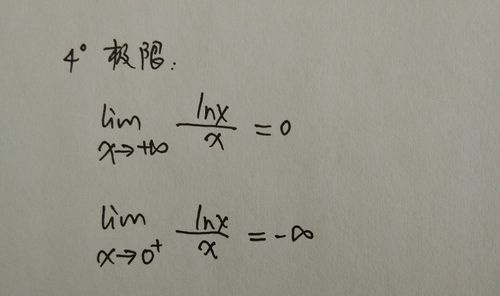 4° 极限:
lim x→+∞ lnx/x = 0
lim x→0⁺ lnx/x = -∞